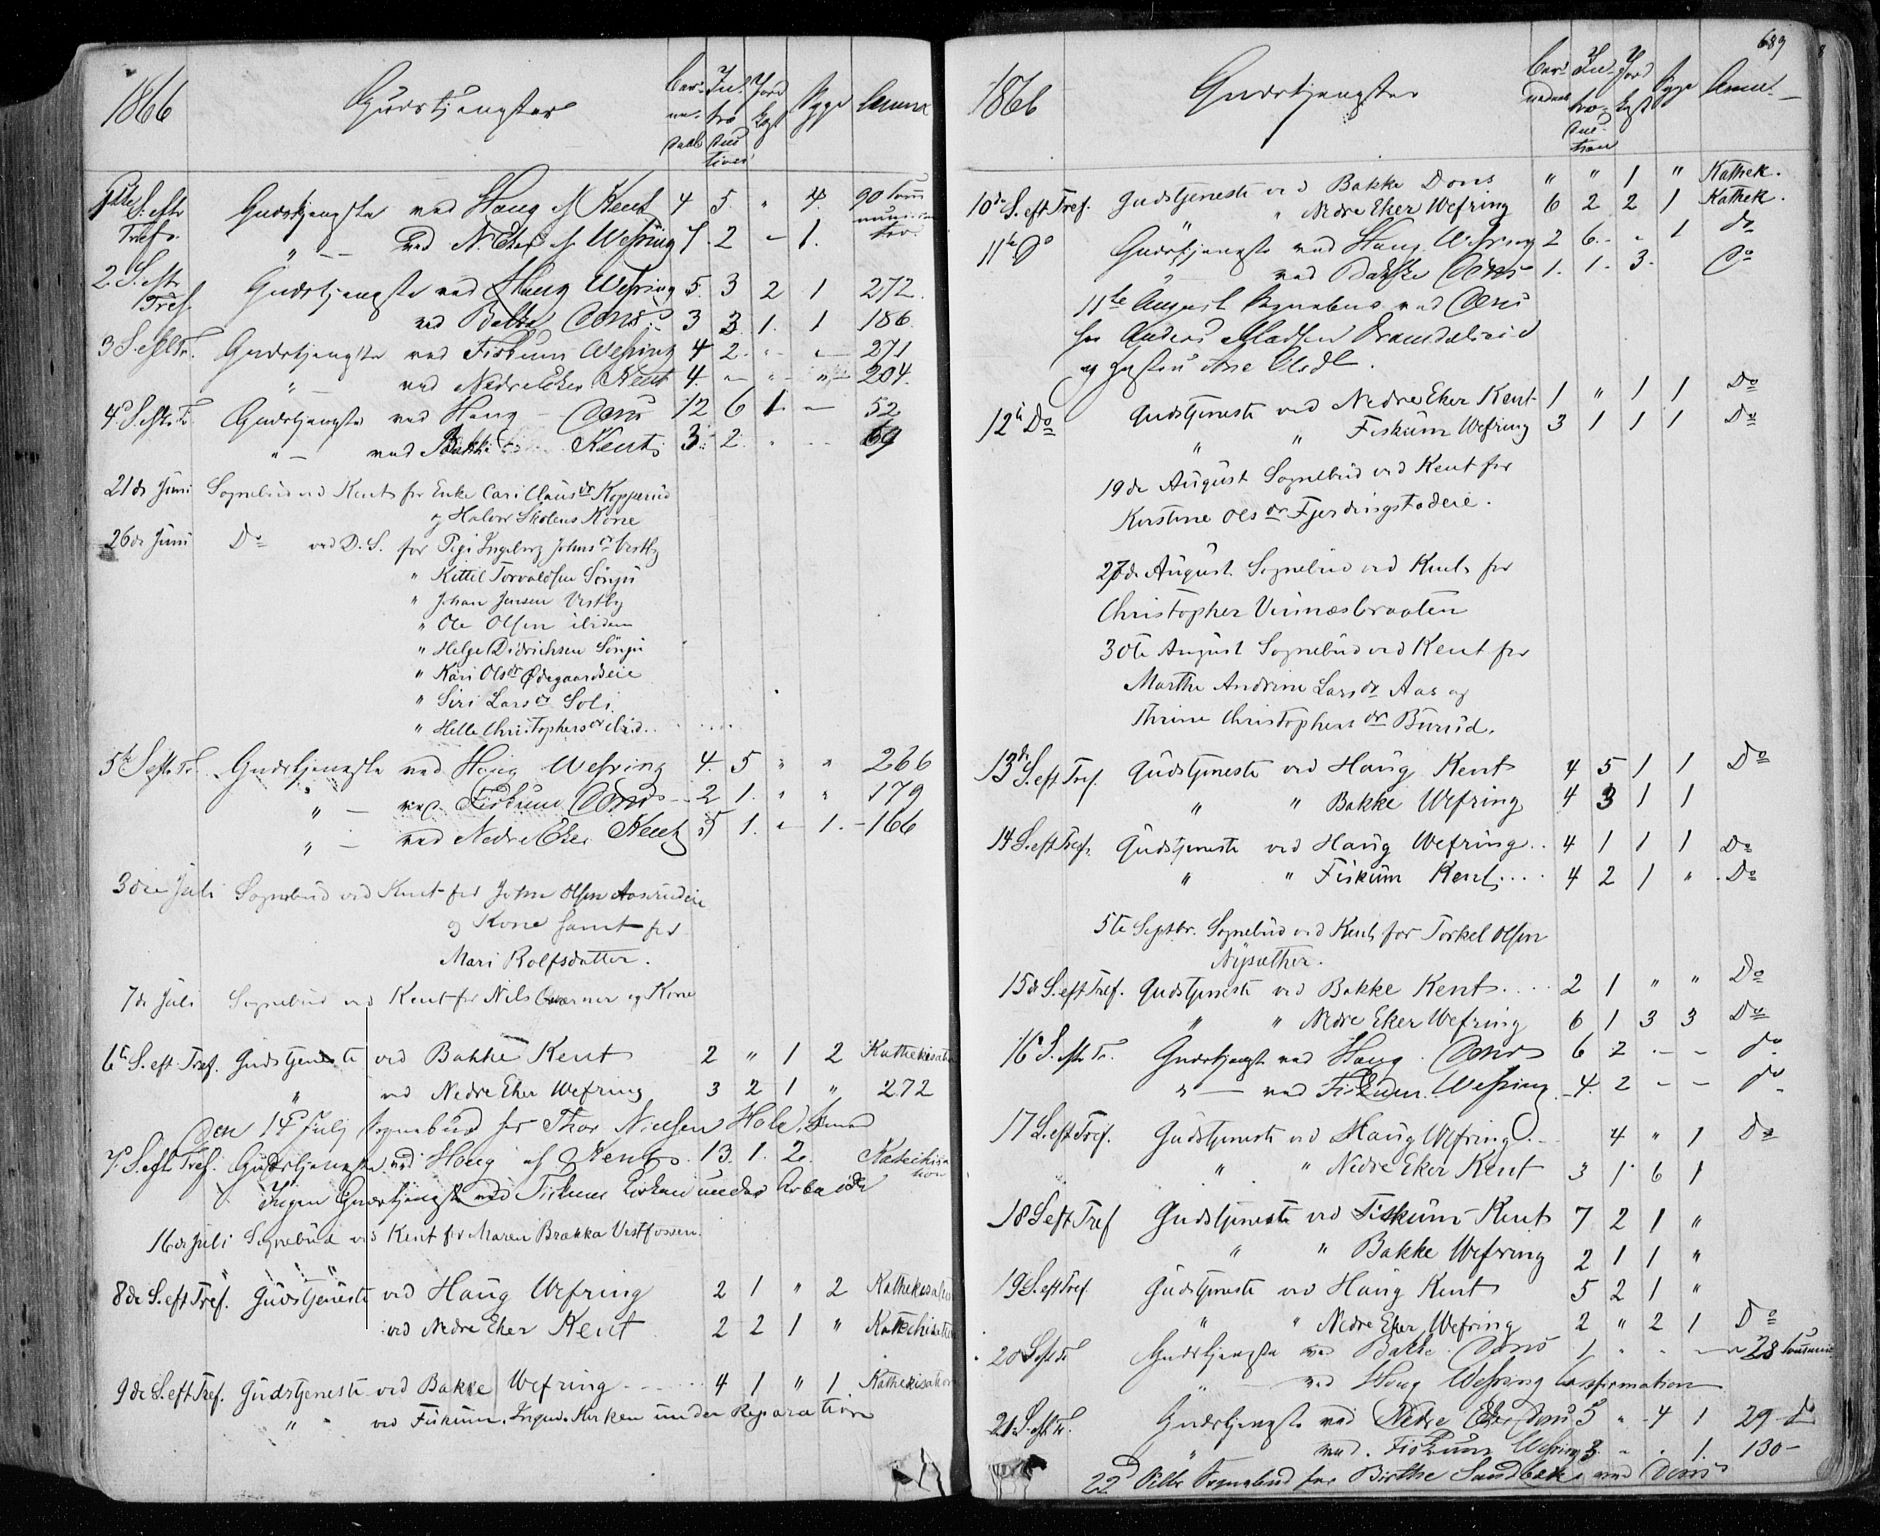 1866 Gudstjenester Barnedaab Introductioner Jord kast Vgse Anm
1ste S. eft Trefo. Gudstjeneste ved Haug af Kent 4 5 " 4. 90 Communicanter
" — ved N. Eker af Wefring 7. 2 — 1.
2. S. eft Tref. Gudstjeneste ved Haug Wefring 5. 3 2 1 272.
ved Bakke Döns 3 3 1. 1 186.
3 S. eft Tr. Gudstjeneste ved Fiskum Wefring 4 2. " — 271
" — ved Nedre Eker Kent 4. — " — 204.
4d S. eft. Tr. Gudstjeneste ved Haug — Döns 12 6 1 — 52
" — ved Bakke Kent 3. 2. " — 69
21de Juni Sognebud ved Kent for Enke Cari Clausdr Kopperud
og Halvor Skolens Kone
26de Juni Do ved D. S. for Pige Ingeborg Johnsdr Vestby
" Kittil Torvaldsen Sönju
" Johan Jensen Vestby
" Ole Olsen ibidem
" Helge Didrichsen Sönju
" Kari Olsdr Ødegaardseie
" Siri Larsdr Soli
" Helle Christophersdr ibid..
5te S. eft. Tr. Gudstjeneste ved Haug Wefring 4. 5 " " 266
" — ved Fiskum Döns — 2 1. " " 179
" — ved Nedre Eker Kent 5 1. — 1. — 166
3die Juli Sognebud ved Kent for John Olsen Aasrudeie
og Kone samt for
Mari Rolfsdatter.
7de Juli Sognebud ved Kent for Nils Qværner og Kone
6te S. eft. Tref. Gudstjeneste ved Bakke Kent 2 " 1 2 Kathekisation
" ved Nedre Eker Wefring 3 2 1 " 272
Den 14d July Sognebud for Thor Nielsen Hole,
7d S. eft Tref. Gudstjeneste ved Haug af Kent. 13. 1. 2. Katechisation
Ingen Gudstjeneste ved Fiskum Kirken under Arbeide
16de Juli Sognebud ved Kent for Maren Brakka Vestfossen.
8de S. eft Tref. Gudstjeneste ved Haug Wefring 2 1 " 2 Kathekisation
ved Nedre Eker Kent 2 2 1 " Katechisation
9de S. eft Tref. Gudstjeneste ved Bakke Wefring 4 1 " 1 Kathekisation
" " ved Fiskum. Ingen. Kirken under Reparation
689
1866 Gudstjenester Barnedaab Introduction Jord kast Vgse Anm.
10de S. eft Tref. Gudstjeneste ved Bakke Döns " " 1 " Kathek.
" Nedre Eker Wefring 6 2 2 1 Kathek.
11te Do Gudstjeneste ved Haug Wefring 2 6. — 1 do
" ved Bakke Döns 1. 1. 3. Do
11te August Sognebud ved Döns
for Anders Madsen
og
12te Do Gudstjeneste ved Nedre Eker Kent 1 " 1 1 Do
" " Fiskum Wefring 3 1 1 1 Do
19de August Sognebud ved Kent for
Kirstine Olsdr Fjerdingstadeie.
27de August Sognebud ved Kent for
Christopher Vinnæsbraaten
30te August Sognebud ved Kent for
Marthe Andrine Larsdr Aas og
Thrine Christophersdr Burud.
13de S. eft Tref. Gudstjeneste ved Haug Kent 4 5 1 1 Do
" " Bakke Wefring 4 3 1 1
14 S. eft Tref. Gudstjeneste ved Haug Wefring.. 4 1 1 1 Do
" " Fiskum Kent.... 4 2 1 " Do
5te Septbr. Sognebud ved Kent for Torkel Olsen
Nysæther.
15de S. eft Tref. Gudstjeneste ved Bakke Kent.... 2 1 " " Do
" " Nedre Eker Wefring 6 1 3 3 Do
16d S. eft. Tr. Gudstjeneste ved Haug Döns 6 2 — — do
" — ved Fiskum. Wefring — 4. 2 — — do
17 S. eft Tref. Gudstjeneste ved Haug Wefring.. 4 " 1 Do
" " Nedre Eker Kent 3 1 6 1
18 S eft Tref Gudstjeneste ved Fiskum Kent 7 2 1 "
" " Bakke Wefring 2 1 1 "
19 S. eft Tref. Gudstjeneste ved Haug Kent 5 2 1 "
" " Nedre Eker Wefring 2 " 2 1 Do
20 S eft Tr Gudstjeneste ved Bakke Döns 1 " " — 28 Commun
" ved Haug Wefring Confirmation
21 S. eft Tr. Gudstjeneste ved Nedre Eker Döns 5 " 4 1 29 do
" ved. Fiskum Wefring 3. " " 1. 130 —
22d Octbr Sognebud for Birthe Sandbæk ved Döns